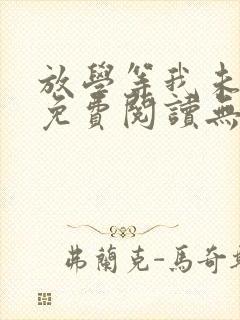 放學等我未
免費閱讀無
弗蘭克-馬奇